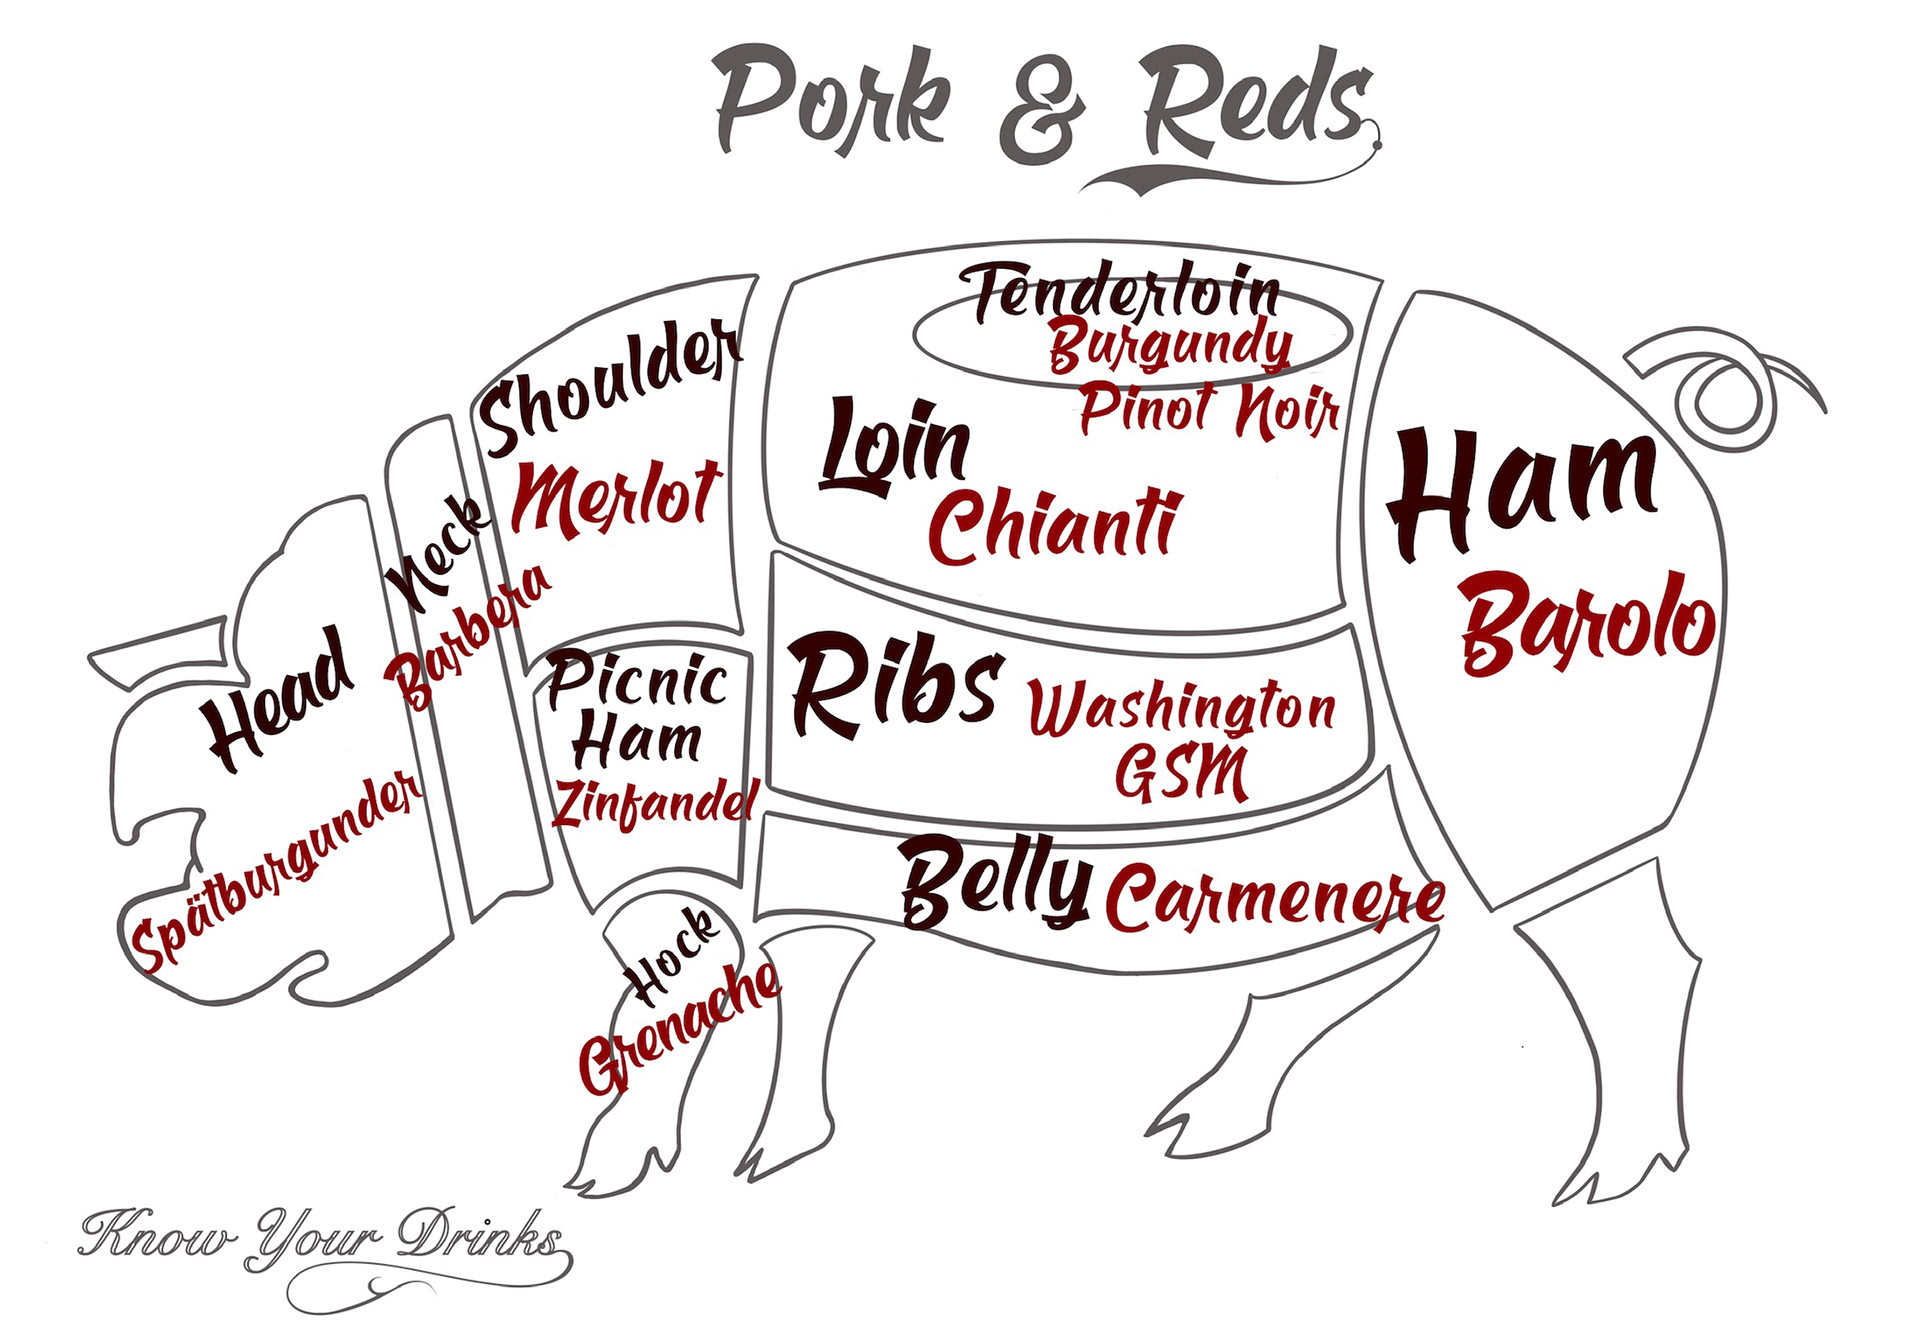 Pork & Reds
Tenderloin
Burgundy
Pinot Noir
Shoulder
Merlot
Loin
Chianti
Ham
Barolo
Neck
Barbera
Head
Spätburgunder
Picnic
Ham
Zinfandel
Ribs
Washington
GSM
Belly
Carmenere
Hock
Grenache
Know Your Drinks